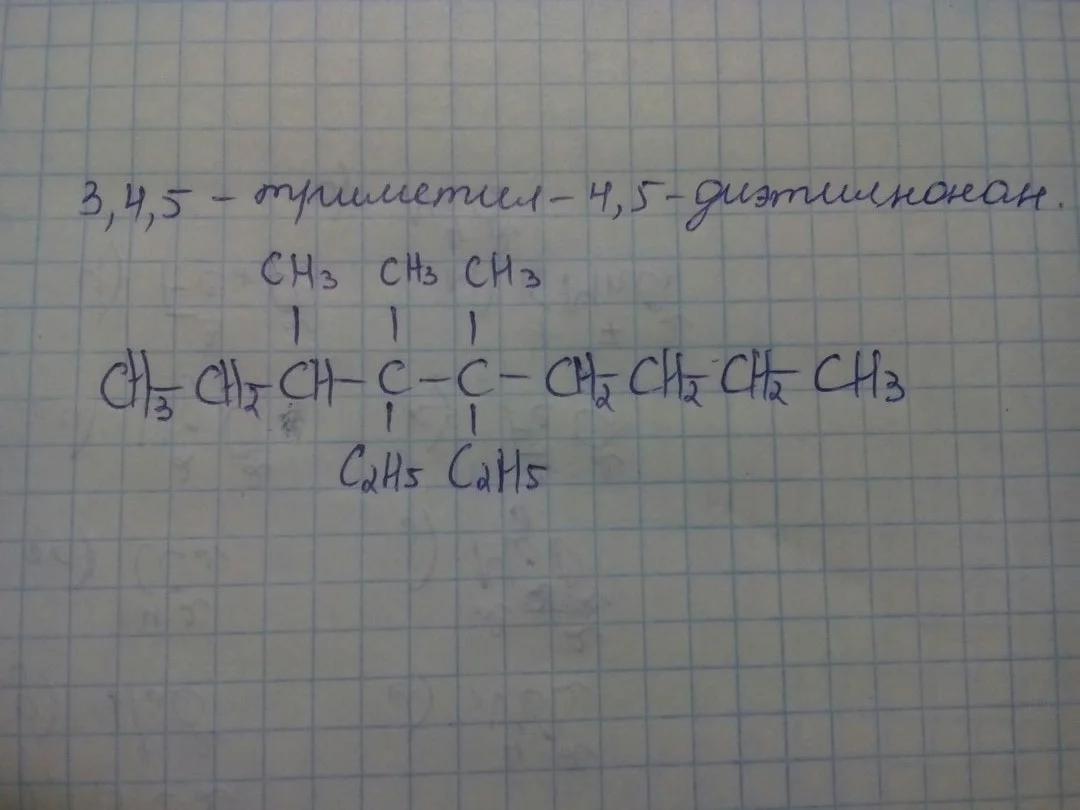 3,4,5 - триметил - 4,5 - диэтилнонан.
CH3 CH3 CH3
| | |
CH3 - CH2 - CH - C - C - CH2 - CH2 - CH2 - CH3
| |
C2H5 C2H5